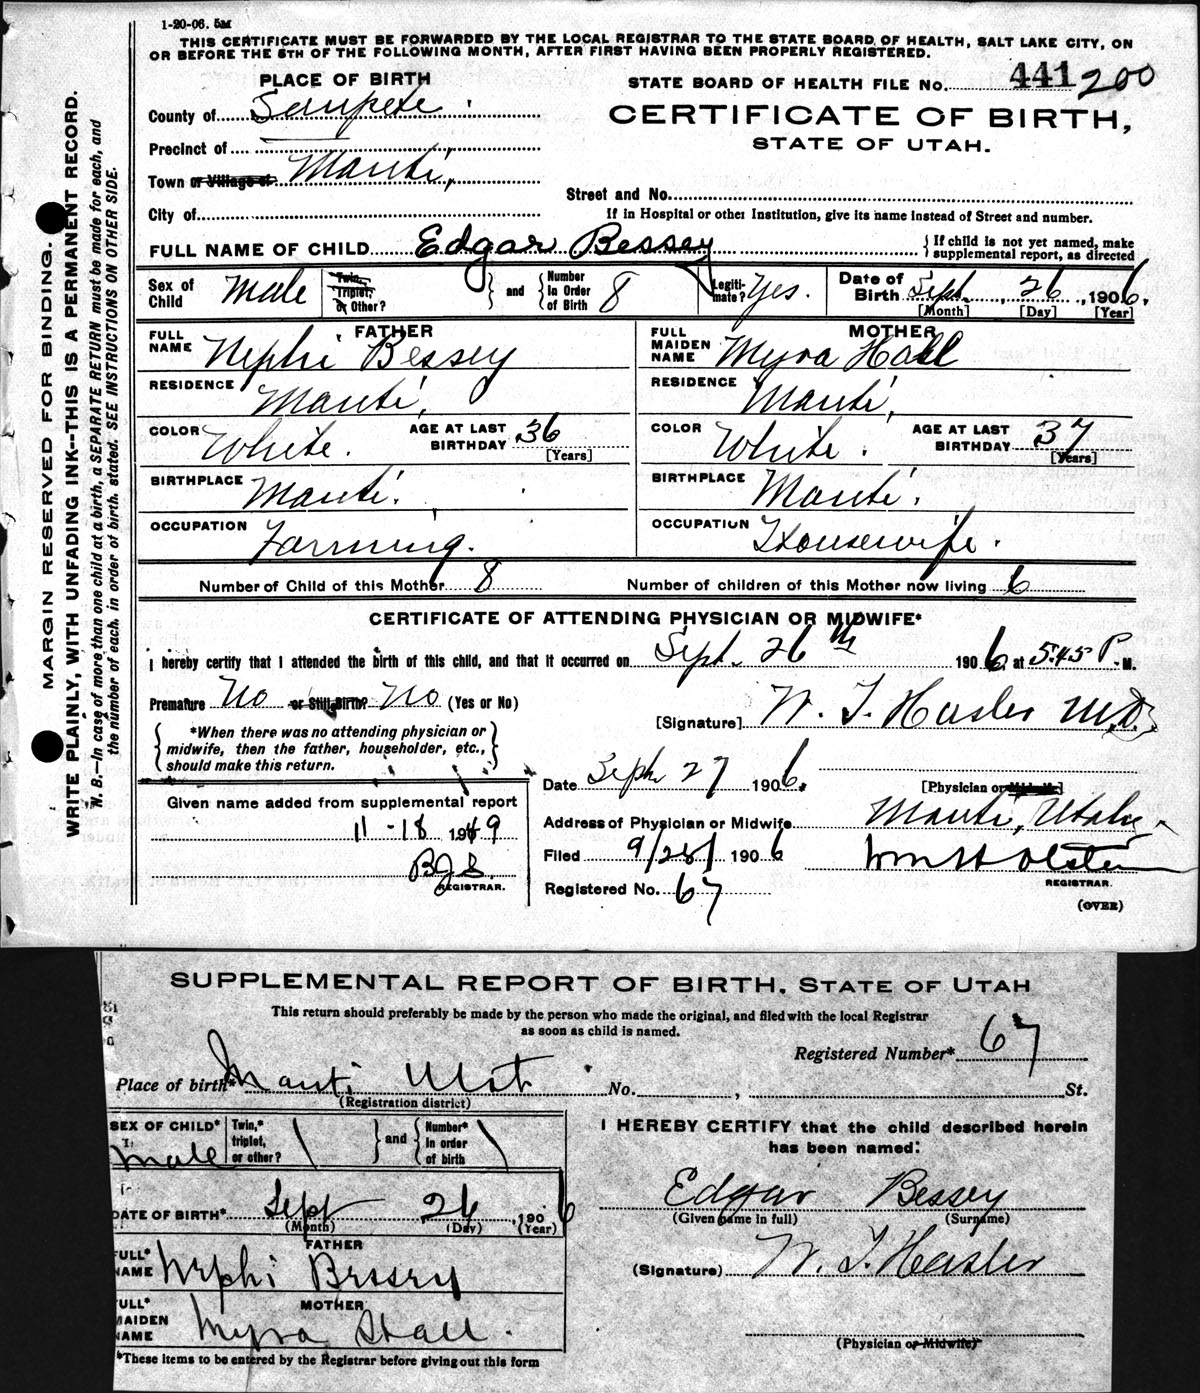 1-20-06. 5M
THIS CERTIFICATE MUST BE FORWARDED BY THE LOCAL REGISTRAR TO THE STATE BOARD OF HEALTH, SALT LAKE CITY, ON
OR BEFORE THE 5TH OF THE FOLLOWING MONTH, AFTER FIRST HAVING BEEN PROPERLY REGISTERED.
PLACE OF BIRTH
STATE BOARD OF HEALTH FILE No. 441 200
County of Sanpete.
CERTIFICATE OF BIRTH,
STATE OF UTAH.
Precinct of
Town or Village of Manti,
Street and No.
City of
If in Hospital or other Institution, give its name instead of Street and number.
FULL NAME OF CHILD Edgar Bessey
If child is not yet named, make supplemental report, as directed
Sex of Child Male
Twin, Triplet, or Other? and Number In Order of Birth 8
Legitimate? Yes.
Date of Birth Sept. 26, 1906.
[Month] [Day] [Year]
FATHER
FULL NAME Nephi Bessey
MOTHER
FULL MAIDEN NAME Myra Hall
RESIDENCE Manti,
RESIDENCE Manti,
COLOR White. AGE AT LAST BIRTHDAY 36 [Years]
COLOR White. AGE AT LAST BIRTHDAY 37 [Years]
BIRTHPLACE Manti.
BIRTHPLACE Manti.
OCCUPATION Farming.
OCCUPATION Housewife.
Number of Child of this Mother 8 Number of children of this Mother now living 6
CERTIFICATE OF ATTENDING PHYSICIAN OR MIDWIFE*
I hereby certify that I attended the birth of this child, and that it occurred on Sept. 26th 1906. at 5:45 P. M.
Premature No or Still Birth? No (Yes or No)
[Signature] W. T. Hasler M.D.
*When there was no attending physician or
midwife, then the father, householder, etc.,
should make this return.
Date Sept 27 1906.
[Physician or Midwife]
Given name added from supplemental report
11-18 1949
BJS.
REGISTRAR.
Address of Physician or Midwife Manti, Utah.
Filed 9/28/ 1906
REGISTRAR.
Registered No. 67
(OVER)
MARGIN RESERVED FOR BINDING.
WRITE PLAINLY, WITH UNFADING INK--THIS IS A PERMANENT RECORD.
N. B.—In case of more than one child at a birth, a SEPARATE RETURN must be made for each, and
the number of each, in order of birth, stated. SEE INSTRUCTIONS ON OTHER SIDE.
SUPPLEMENTAL REPORT OF BIRTH, STATE OF UTAH
This return should preferably be made by the person who made the original, and filed with the local Registrar
as soon as child is named.
Registered Number* 67
Place of birth* Manti Utah No. , St.
(Registration district)
SEX OF CHILD* Male
Twin,* triplet, or other? and Number* in order of birth
I HEREBY CERTIFY that the child described herein
has been named:
DATE OF BIRTH* Sept 26, 1906
(Month) (Day) (Year)
Edgar Bessey
(Given name in full) (Surname)
FATHER
FULL* NAME Nephi Bessey
(Signature) W. T. Hasler
MOTHER
FULL* MAIDEN NAME Myra Hall.
(Physician or Midwife)
*These items to be entered by the Registrar before giving out this form